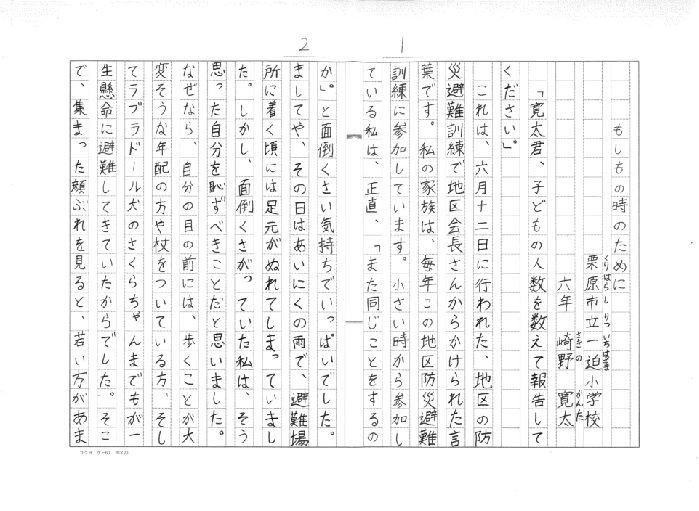 2
1
もしもの時のために
栗原市立一迫小学校
くりはらしりついちはさま
六年 崎野 寛太
さきの かんた
「寛太君、子どもの人数を数えて報告して
ください」。
これは、六月十二日に行われた、地区の防
災避難訓練で地区会長さんからかけられた言
葉です。私の家族は、毎年この地区防災避難
訓練に参加しています。小さい時から参加し
ている私は、正直、「また同じことをするの
か」。と面倒くさい気持ちでいっぱいでした。
ましてや、その日はあいにくの雨で、避難場
所に着く頃には足元がぬれてしまっていまし
た。しかし、面倒くさがっていた私は、そう
思った自分を恥ずべきことだと思いました。
なぜなら、自分の目の前には、歩くことが大
変そうな年配の方や杖をついている方、そし
てラブラドール犬のさくらちゃんまでもが一
生懸命に避難してきていたからでした。そこ
で、集まった顔ぶれを見ると、若い方があま